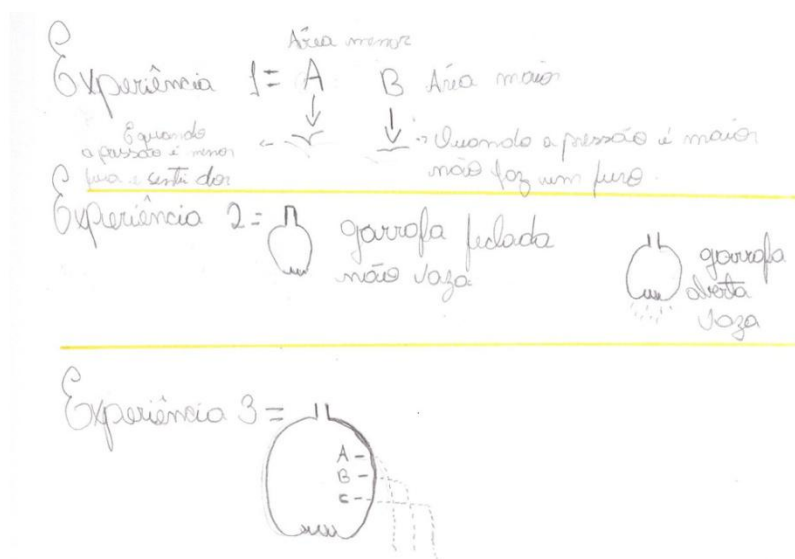 Área menor
Experiência 1= A B Área maior
É quando
a pressão é menor
fura e senti dor
Quando a pressão é maior
não faz um furo.
Experiência 2=
garrafa fechada
não vaza
garrafa
aberta
vaza
Experiência 3=
A
B
C